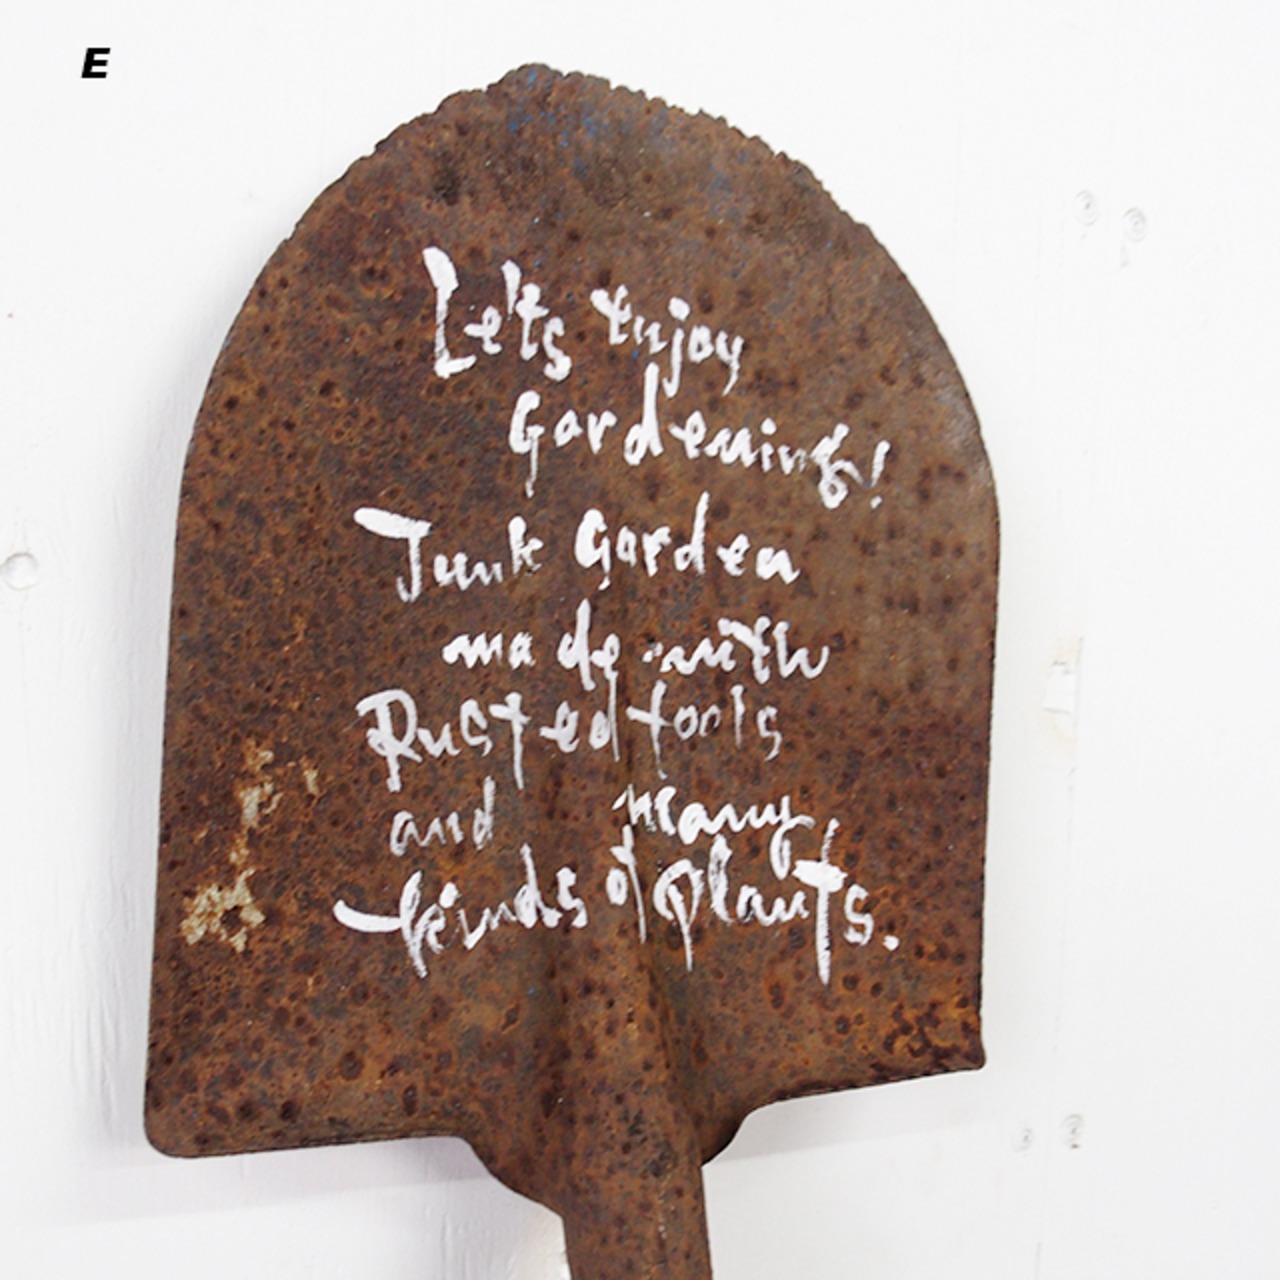 E
Let's enjoy
Gardening!
Junk Garden
made with
Rusted tools
and many
kinds of plants.